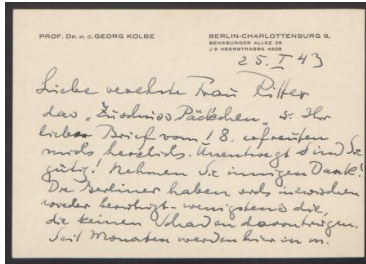 PROF. DR. H. C. GEORG KOLBE
BERLIN-CHARLOTTENBURG 9,
SENSBURGER ALLEE 25
J 9 HEERSTRASSE 4028
25. I 43
Liebe verehrte Frau Ritter
das „ Päckchen" u. Ihr
lieber Brief vom 18. erfreuten
mich herzlich. Unentwegt sind Sie
gütig! Nehmen Sie innigen Dank!
Die Berliner haben sich inzwischen
wieder beruhigt - wenigstens die,
die keinen Schaden davontrugen.
Seit Monaten werden hier in m.